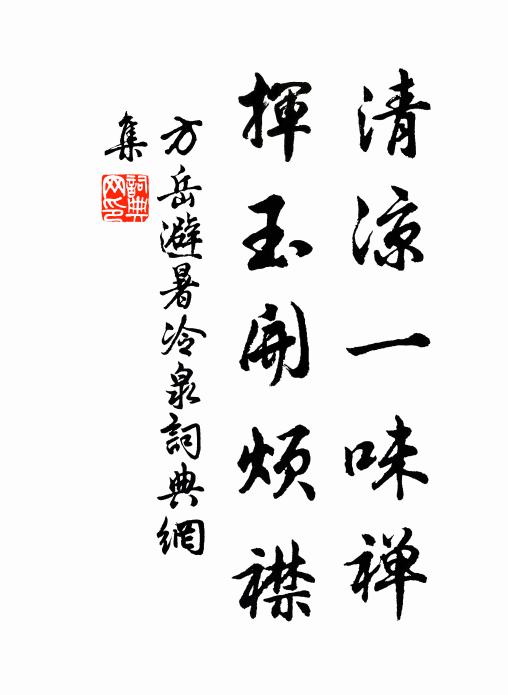 清涼一味禅
揮玉開煩襟
方岳避暑冷泉詞典網
集
詞典网印